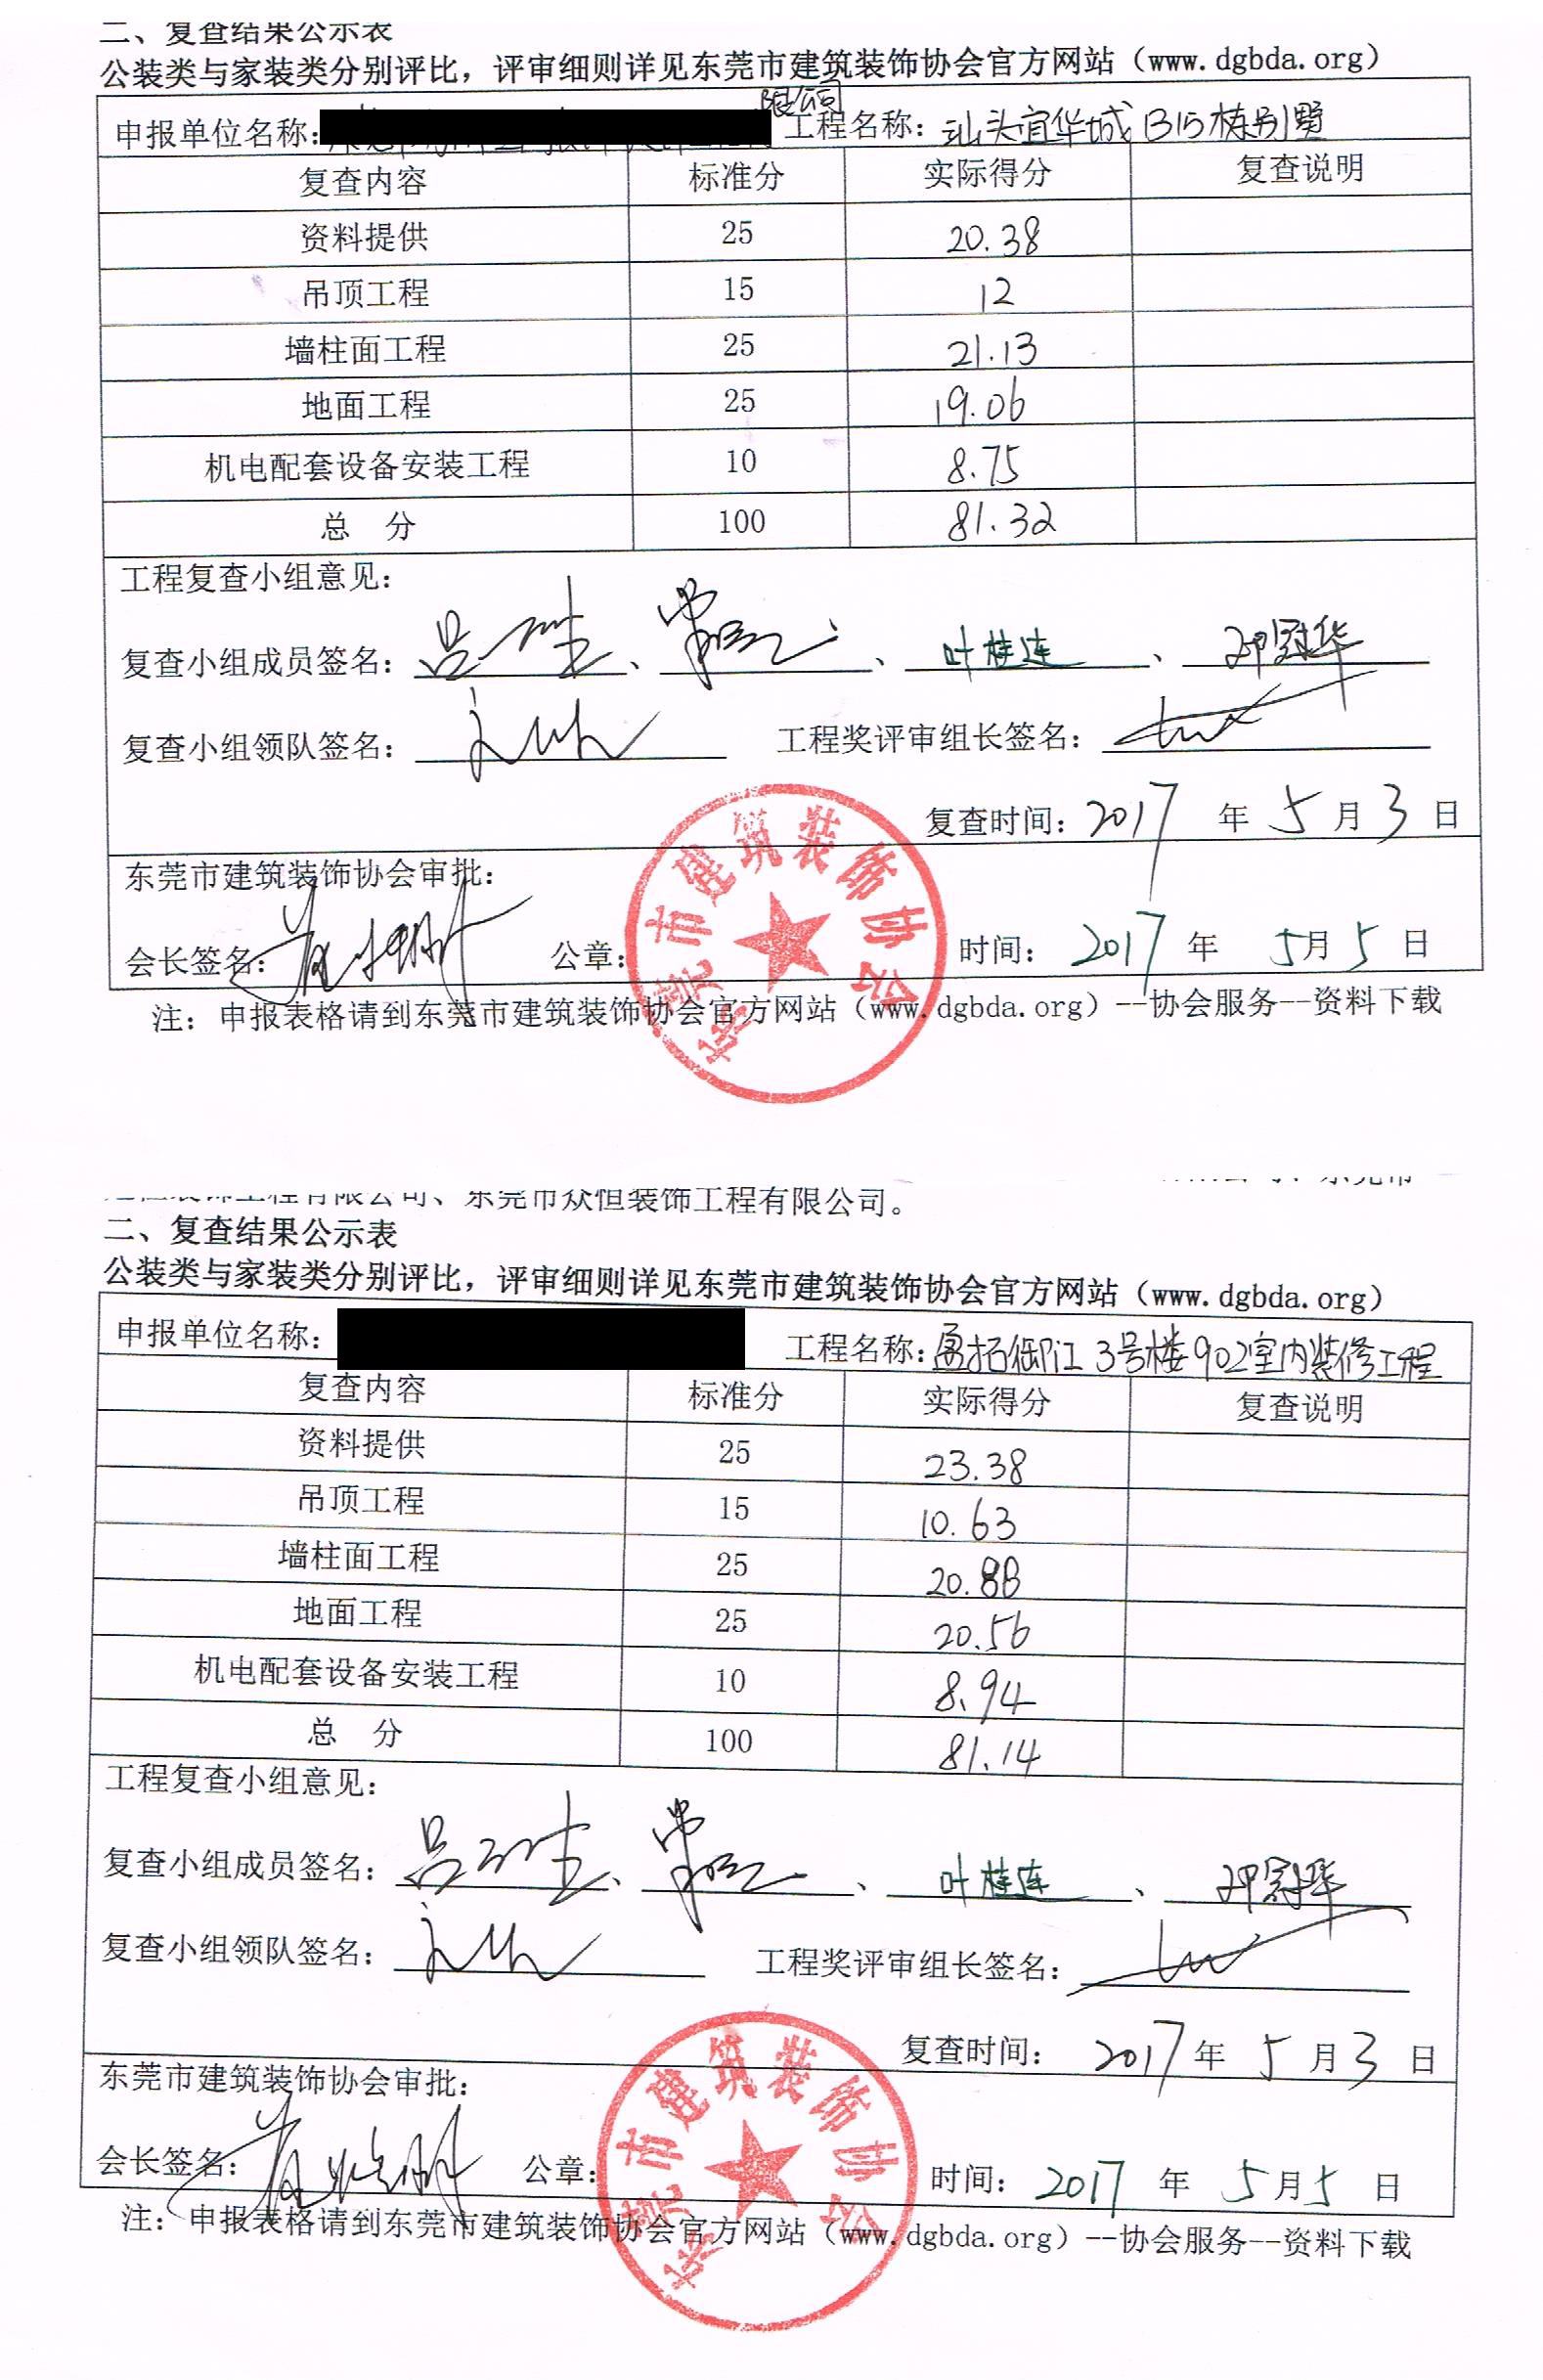 二、复查结果公示表
公装类与家装类分别评比，评审细则详见东莞市建筑装饰协会官方网站（www.dgbda.org）
申报单位名称： 限公司 工程名称：汕头宜华城B15栋别墅
复查内容 标准分 实际得分 复查说明
资料提供 25 20.38
吊顶工程 15 12
墙柱面工程 25 21.13
地面工程 25 19.06
机电配套设备安装工程 10 8.75
总 分 100 81.32
工程复查小组意见：
复查小组成员签名： 、 、 叶桂连 、 邓冠华
复查小组领队签名： 工程奖评审组长签名：
复查时间：2017 年 5 月 3 日
东莞市建筑装饰协会审批：
会长签名： 公章： 时间：2017 年 5月 5 日
东莞市建筑装饰协会
注：申报表格请到东莞市建筑装饰协会官方网站（www.dgbda.org）--协会服务--资料下载
装饰工程有限公司、东莞市众恒装饰工程有限公司。
二、复查结果公示表
公装类与家装类分别评比，评审细则详见东莞市建筑装饰协会官方网站（www.dgbda.org）
申报单位名称： 工程名称：盈拓御江 3号楼902室内装修工程
复查内容 标准分 实际得分 复查说明
资料提供 25 23.38
吊顶工程 15 10.63
墙柱面工程 25 20.88
地面工程 25 20.56
机电配套设备安装工程 10 8.94
总 分 100 81.14
工程复查小组意见：
复查小组成员签名： 、 、 叶桂连 、 邓冠华
复查小组领队签名： 工程奖评审组长签名：
复查时间： 2017 年 5 月 3 日
东莞市建筑装饰协会审批：
会长签名： 公章： 时间：2017 年 5月 5 日
东莞市建筑装饰协会
注：申报表格请到东莞市建筑装饰协会官方网站（www.dgbda.org）--协会服务--资料下载